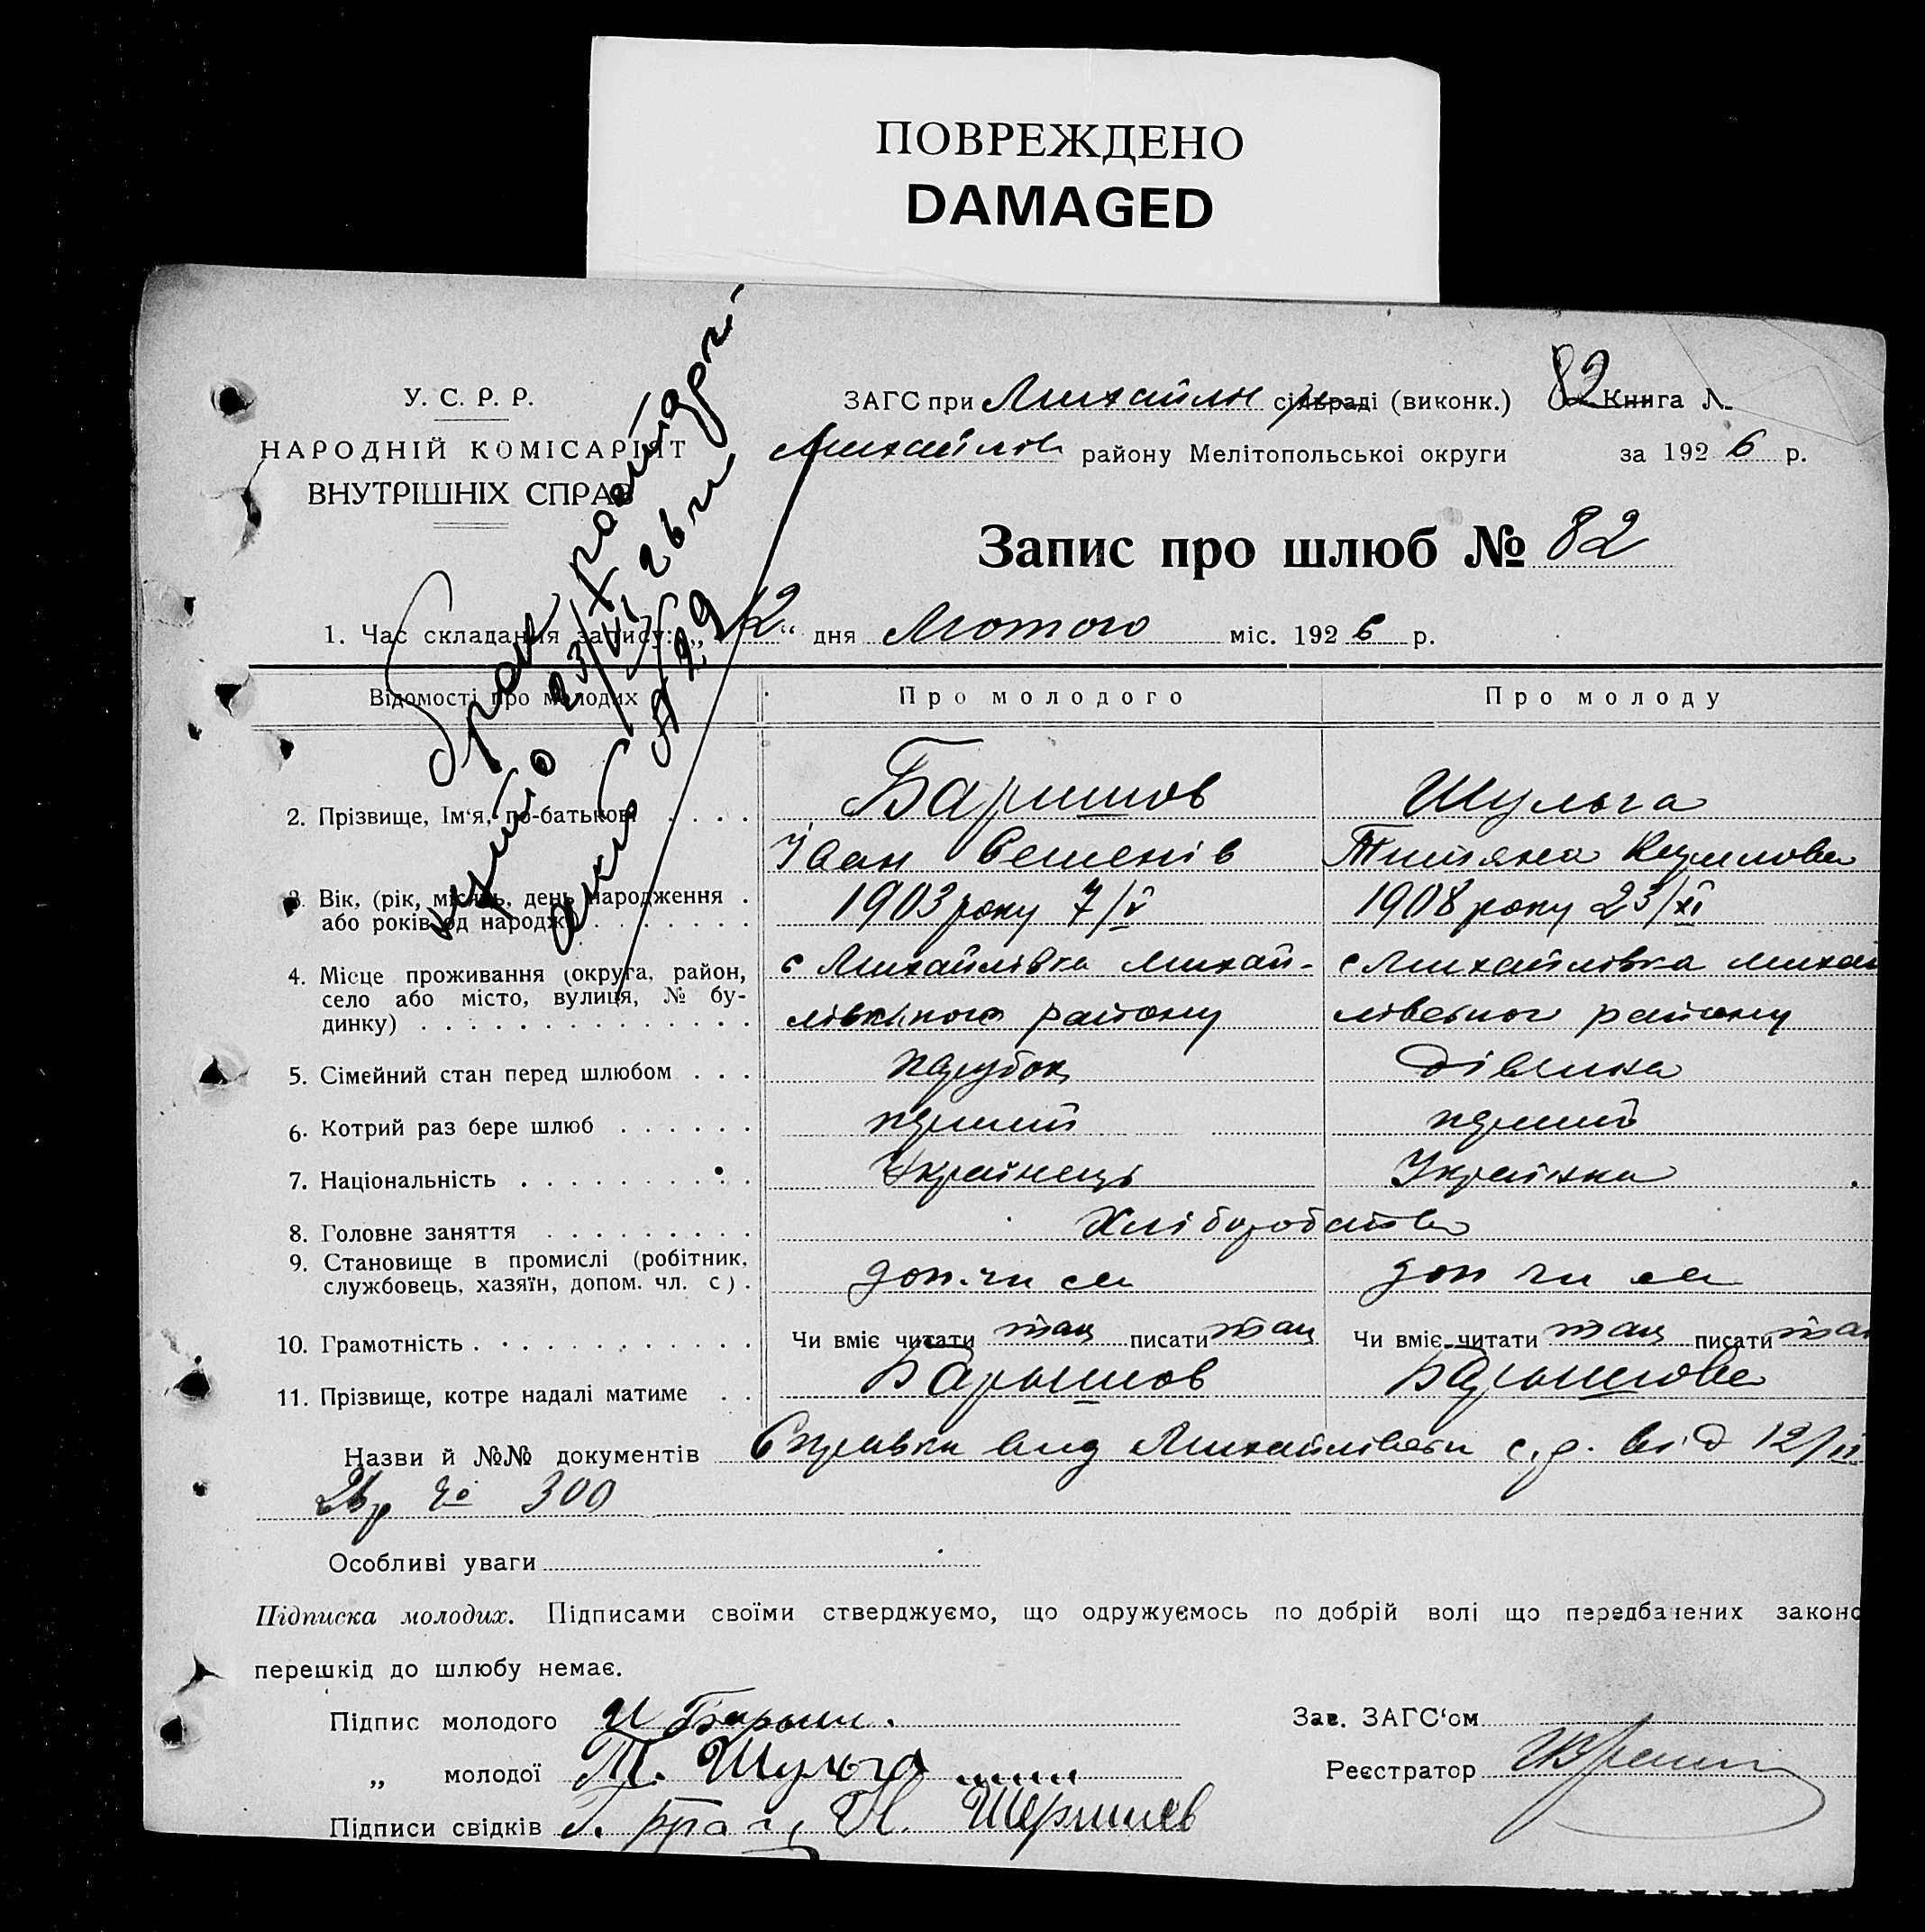 ПОВРЕЖДЕНО
DAMAGED
У. С. Р. Р.
НАРОДНІЙ КОМІСАРІЯТ
ВНУТРІШНІХ СПРАВ
ЗАГС при Михайлів сільраді (виконк.) 82 Книга №
Михайлів району Мелітопольської округи за 1926 р.
Запис про шлюб № 82
1. Час складання запису: „12“ дня Лютого міс. 1926 р.
Відомості про молодих Про молодого Про молоду
2. Прізвище, Ім‘я, по-батькові . . . .
Баришов Шульга
Іван Семенів Титяна
3. Вік, (рік, місяць, день народження .
або років од народж.) . . . . . . .
1903 року 7/V 1908 року 23/XI
4. Місце проживання (округа, район,
село або місто, вулиця, № бу-
динку) . . . . . . . . . . . . . .
с Михайлівка Михай- с Михайлівка Михай
району району
5. Сімейний стан перед шлюбом . . . парубок дівчина
6. Котрий раз бере шлюб . . . . . . перший перший
7. Національність . . . . . . . . . . Українець Українка
8. Головне заняття . . . . . . . . . Хліборобство
9. Становище в промислі (робітник,
службовець, хазяїн, допом. чл. с) . доп. чл см доп чл см
10. Грамотність . . . . . . . . . . . . Чи вміє читати так писати так Чи вміє читати так писати так
11. Прізвище, котре надалі матиме . . Барышов Барышова
Назви й №№ документів Справка від с.р. від 12/II
26р № 300
Особливі уваги
Підписка молодих. Підписами своїми стверджуємо, що одружуємось по добрій волі що передбачених законо
перешкід до шлюбу немає.
Підпис молодого И Барыш. Зав. ЗАГС‘ом
„ молодої Т. Шульга Реєстратор
Підписи свідків Г. Н.
брак
23/VI 26
акт № 29